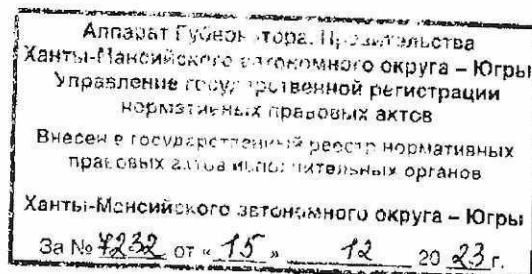 Аппарат Губернатора, Правительства
Ханты-Мансийского автономного округа – Югры
Управление государственной регистрации
нормативных правовых актов
Внесен в государственный реестр нормативных
правовых актов исполнительных органов
Ханты-Мансийского автономного округа – Югры
За № 7232 от « 15 » 12 20 23 г.